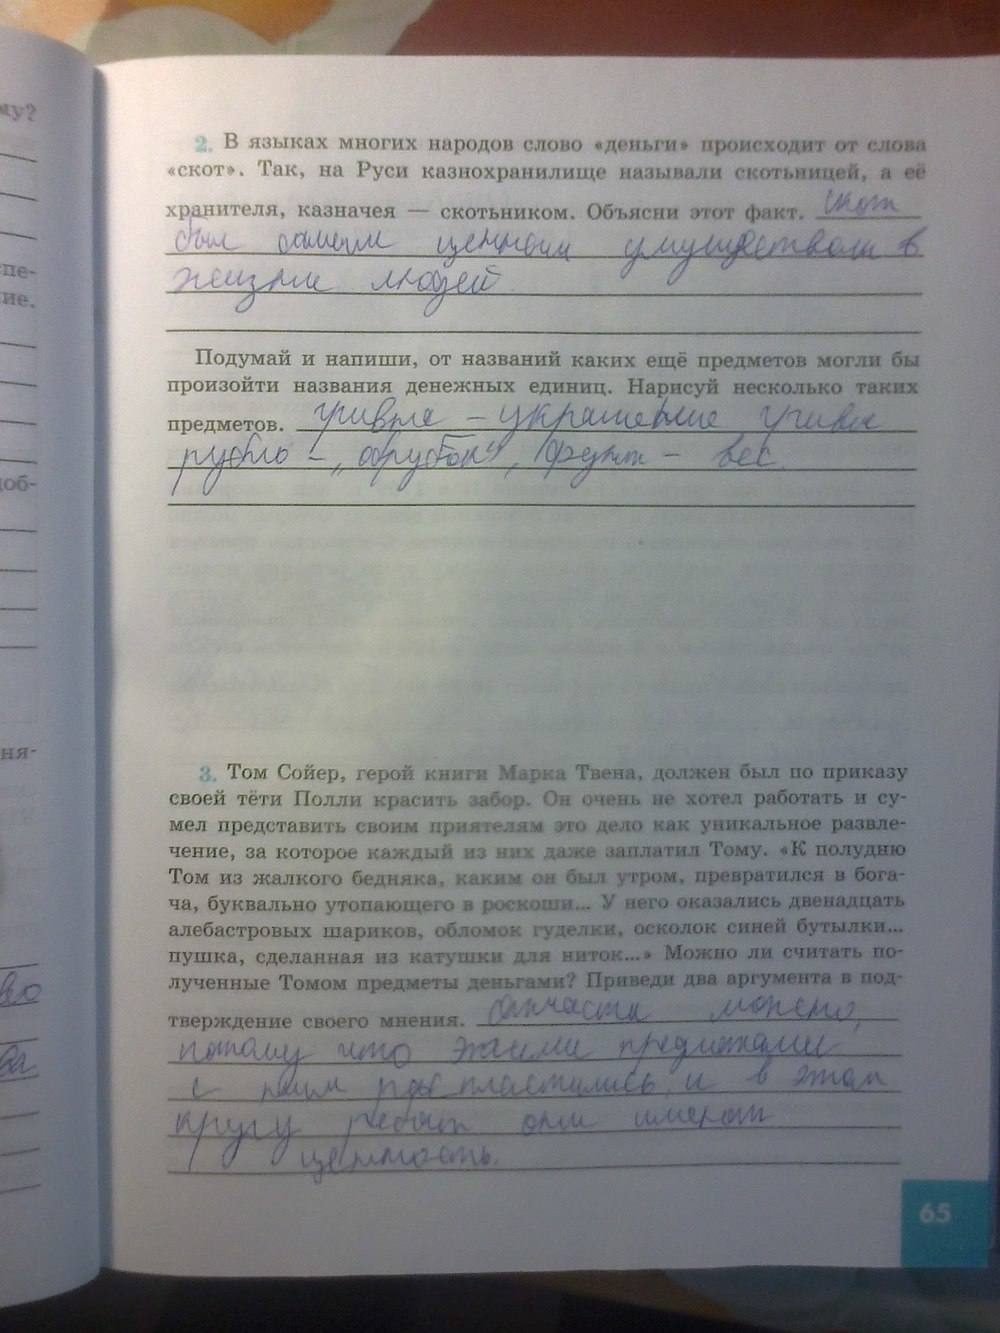 му?
спе-
ие.
доб-
ня-
2. В языках многих народов слово «деньги» происходит от слова
«скот». Так, на Руси казнохранилище называли скотьницей, а её
хранителя, казначея — скотьником. Объясни этот факт. скот
был самым ценным имуществом в
жизни людей
Подумай и напиши, от названий каких ещё предметов могли бы
произойти названия денежных единиц. Нарисуй несколько таких
предметов. гривна – украшение
рубль – „обрубок“, фунт – вес.
3. Том Сойер, герой книги Марка Твена, должен был по приказу
своей тёти Полли красить забор. Он очень не хотел работать и су-
мел представить своим приятелям это дело как уникальное развле-
чение, за которое каждый из них даже заплатил Тому. «К полудню
Том из жалкого бедняка, каким он был утром, превратился в бога-
ча, буквально утопающего в роскоши... У него оказались двенадцать
алебастровых шариков, обломок гуделки, осколок синей бутылки...
пушка, сделанная из катушки для ниток...» Можно ли считать по-
лученные Томом предметы деньгами? Приведи два аргумента в под-
тверждение своего мнения. Отчасти можно,
потому что этими предметами
с ним расплатились, и в этом
кругу ребят они имеют
ценность.
65